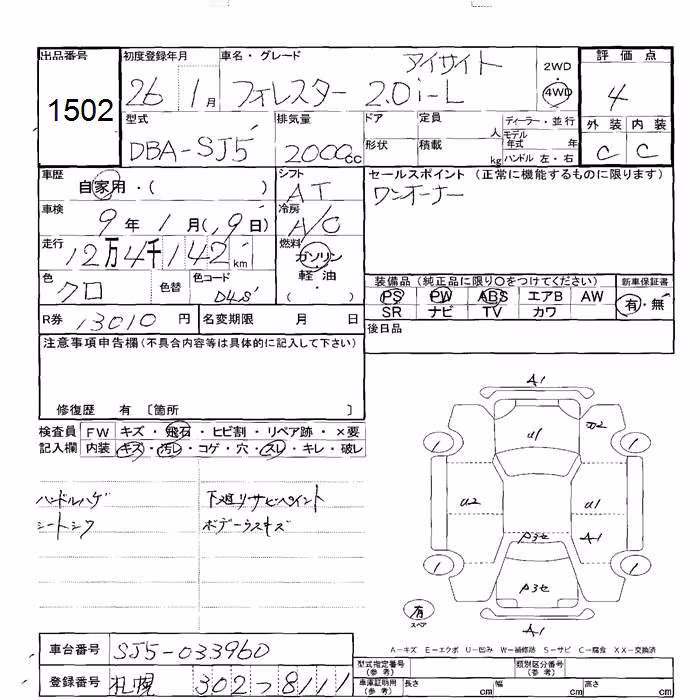 出品番号 初度登録年月 車名・グレード アイサイト 2WD 評価点
1502 26 1月 フォレスター 2.0i-L 4WD 4
型式 排気量 ドア 定員 人 ディーラー・並行 外装 内装
DBA-SJ5 2000cc 形状 積載 kg モデル年式 年 C C
ハンドル 左・右
車歴 自家用・( ) シフト AT セールスポイント (正常に機能するものに限ります)
ワンオーナー
車検 9年 1月(,9日) 冷房 A/C
走行 12万4千142km 燃料 ガソリン
軽油
( )
色 クロ 色替 色コード D4S 装備品 (純正品に限り○をつけてください) 新車保証書
PS PW ABS エアB AW 有・無
SR ナビ TV カワ
R券 13010円 名変期限 月 日 後日品
注意事項申告欄(不具合内容等は具体的に記入して下さい)
修復歴 有 〔箇所 〕
検査員 FW キズ・飛石・ヒビ割・リペア跡・×要
記入欄 内装 キズ・汚レ・コゲ・穴・スレ・キレ・破レ
ハンドルハゲ 下廻リサビペイント
シートシワ ボデーウスキズ
A1
U1
1 1
U2 U1
P3セ A1
P3セ
1 1
有
スペア
A1
A-キズ E-エクボ U-凹み W-補修跡 S-サビ C-腐食 XX-交換済
車台番号 SJ5-033960
型式指定番号(参考) 類別区分番号(参考)
登録番号 札幌 302 8111
車庫証明用(参考) 長さ cm 幅 cm 高さ cm